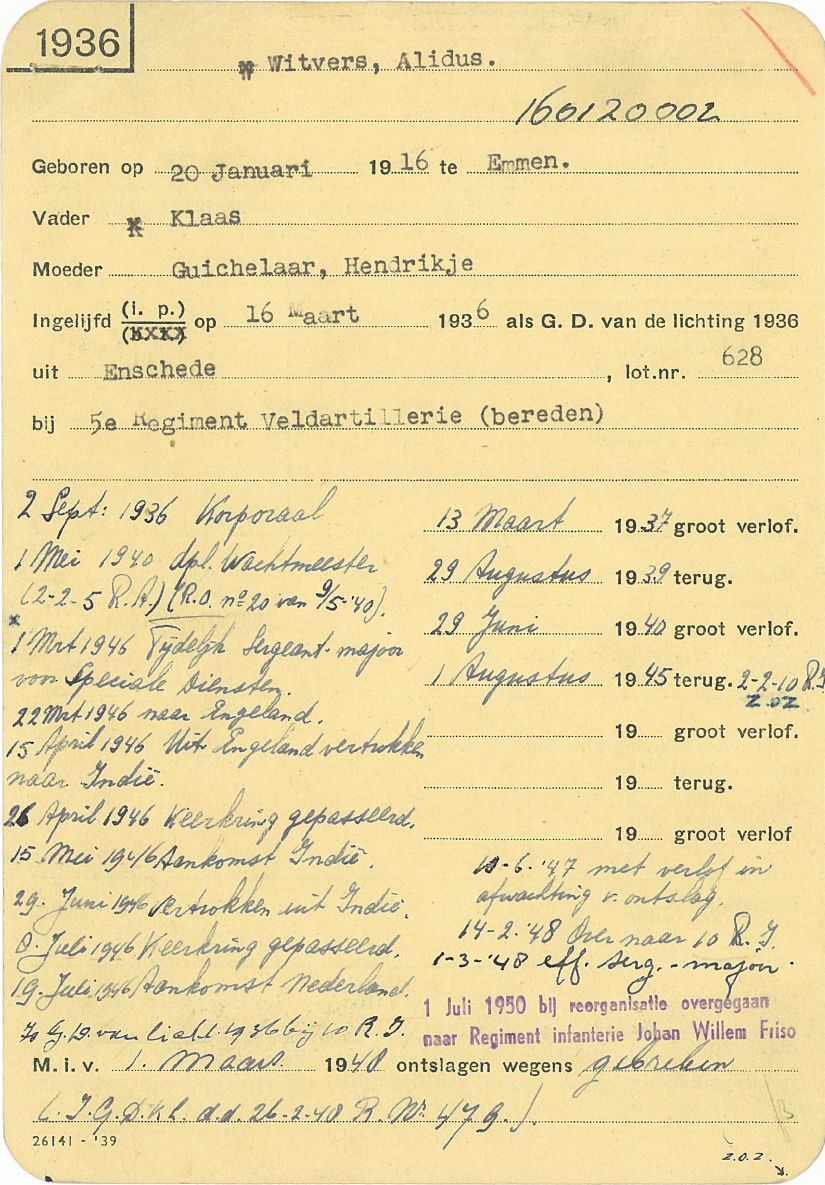 1936
Witvers, Alidus.
160120002
Geboren op 20 Januari 1916 te Emmen.
Vader Klaas
Moeder Guichelaar, Hendrikje
Ingelijfd (i. p.) op 16 Maart 1936 als G. D. van de lichting 1936
uit Enschede, lot.nr. 628
bij 5e Regiment Veldartillerie (bereden)
2 Sept: 1936 Korporaal
1 Mei 1940 dpl. Wachtmeester
(2-2-5 R.A.) (R.O. nº 20 van 9/5-'40).
1 Mrt 1946 Tijdelijk Sergeant-majoor
voor Speciale Diensten.
22 Mrt 1946 naar Engeland.
15 April 1946 Uit Engeland vertrokken
naar Indië.
26 April 1946 Keerkring gepasseerd.
15 Mei 1946 Aankomst Indië.
29. Juni 1946 vertrokken uit Indië.
8. Juli 1946 Keerkring gepasseerd.
19. Juli 1946 Aankomst Nederland.
G.D. van licht. 1936 bij 10 R.I.
13 Maart 1937 groot verlof.
29 Augustus 1939 terug.
29 Juni 1940 groot verlof.
1 Augustus 1945 terug. 2-2-10 R.I.
Z.O.Z.
19 groot verlof.
19 terug.
19 groot verlof
10-6-'47 met verlof in
afwachting v. ontslag.
14-2-'48 Over naar 10 R.I.
1-3-'48 eff. serg.-majoor.
1 Juli 1950 bij reorganisatie overgegaan
naar Regiment infanterie Johan Willem Friso
M. i. v. 1. Maart 1948 ontslagen wegens gebreken
(I.G.D.K.L. d.d. 26-2-48 R. Nr. 47 G.).
26141 - '39
z.o.z.